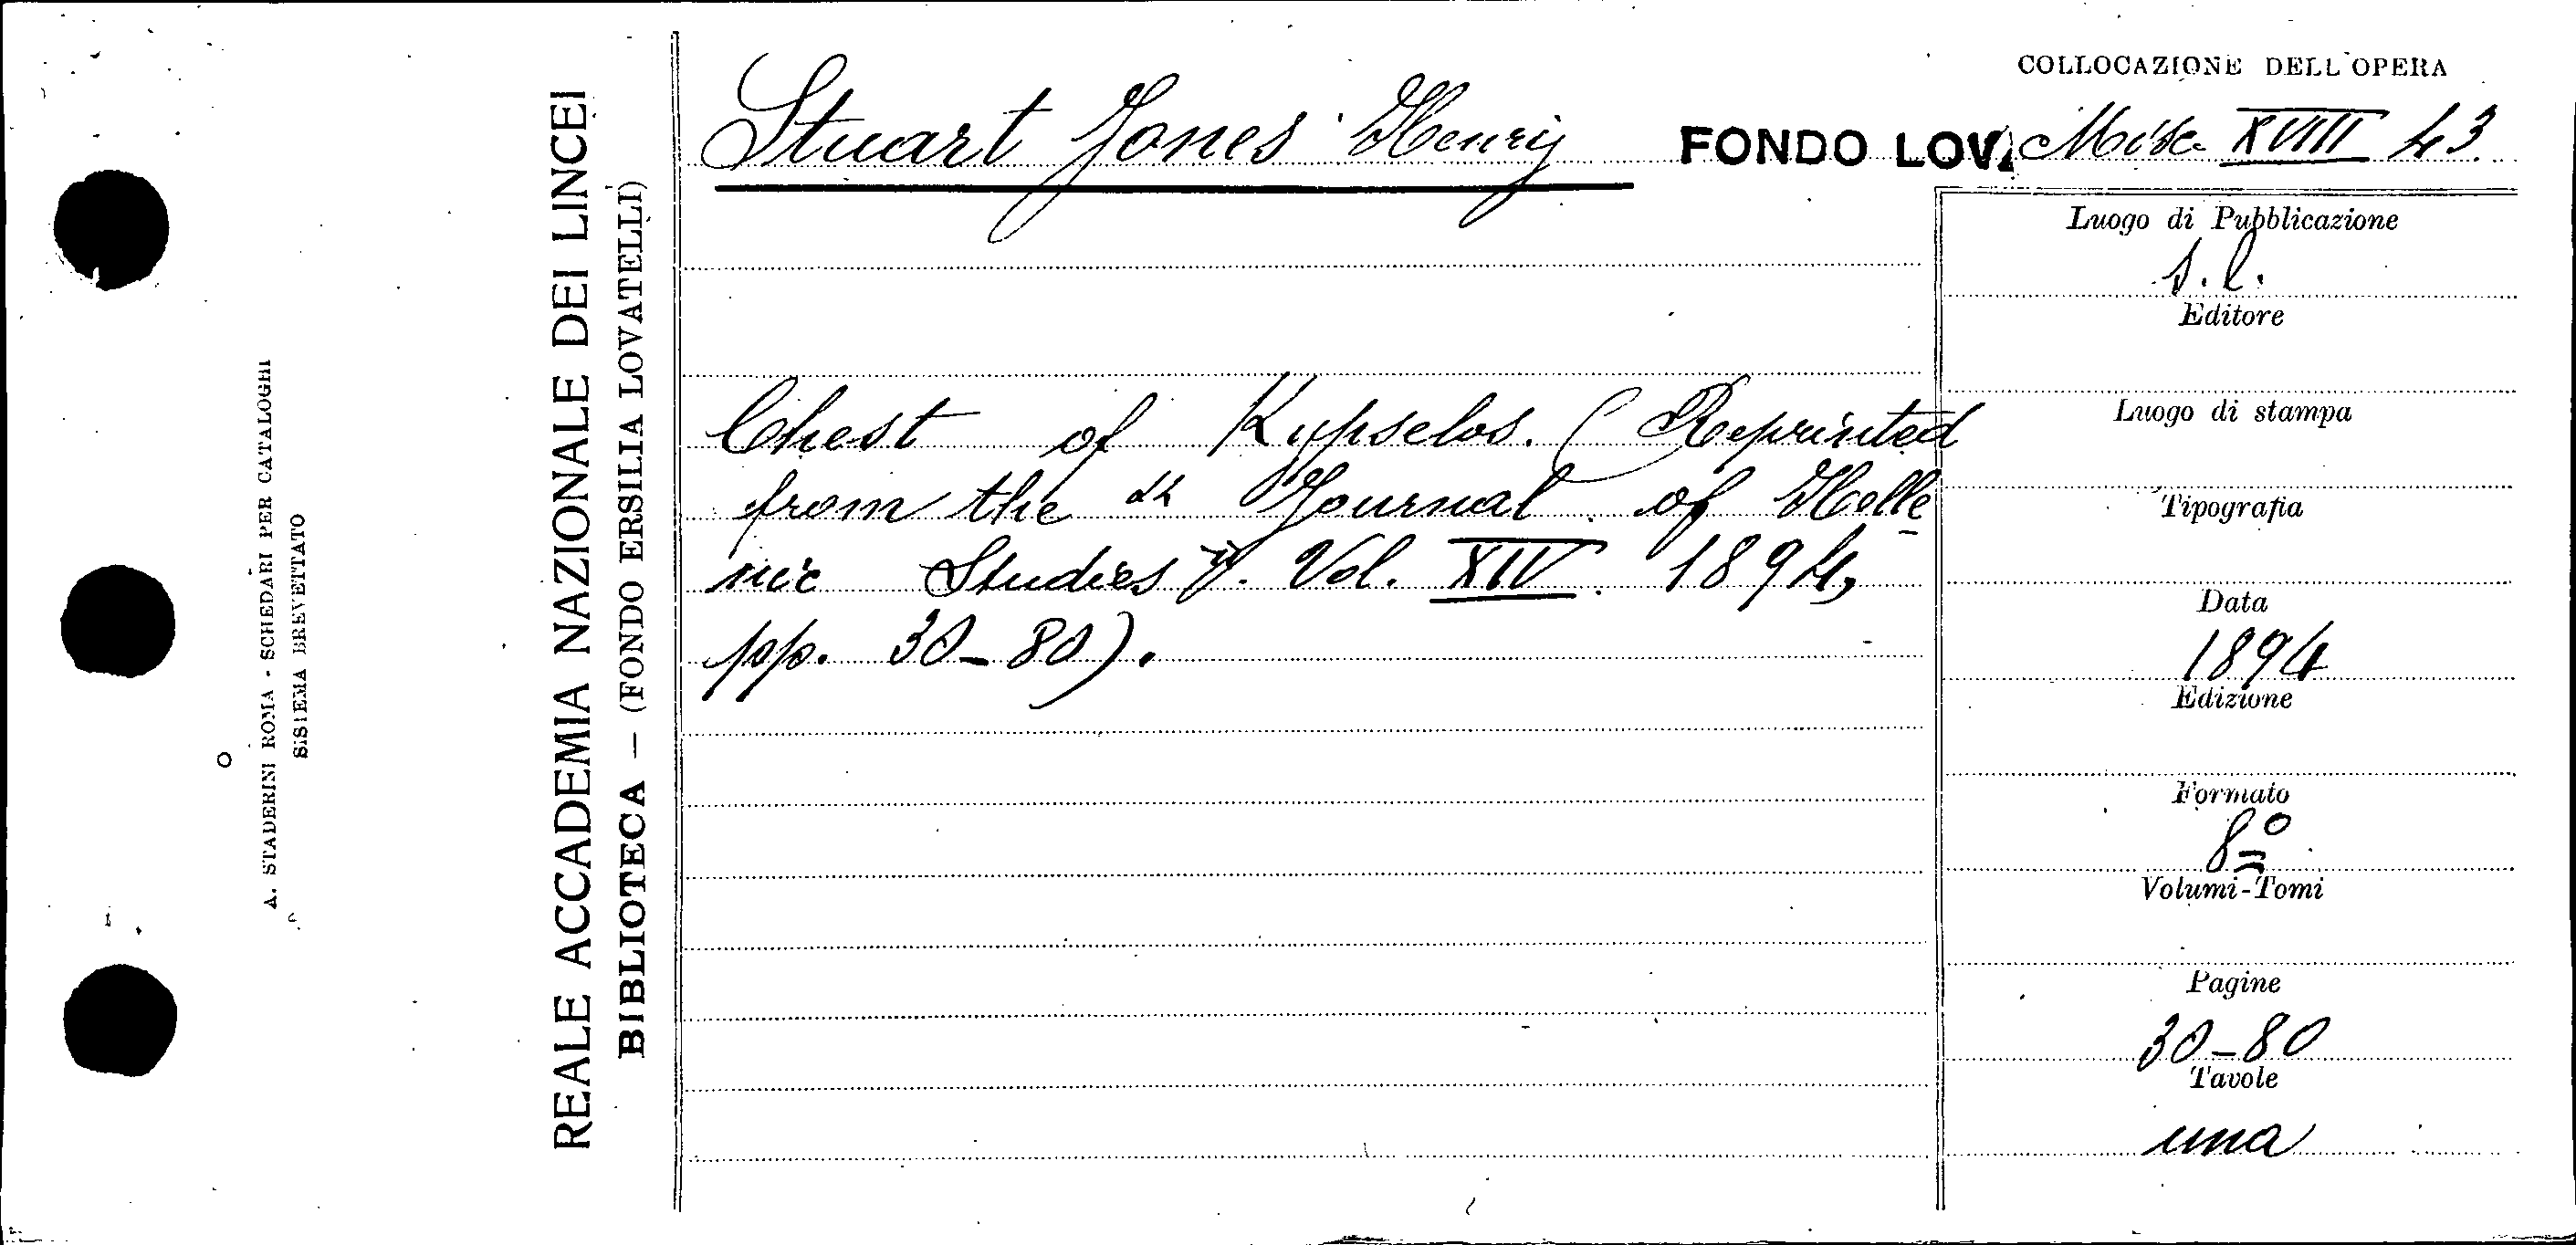 COLLOCAZIONE DELL'OPERA
Stuart Jones Henry
FONDO LOV. Misc. XVIII 43
Chest of Kypselos. (Reprinted
from the "Journal of Helle
nic Studies". Vol. XIV. 1894,
pp. 30-80).
Luogo di Pubblicazione
s. l.
Editore
Luogo di stampa
Tipografia
Data
1894
Edizione
Formato
8º
Volumi-Tomi
Pagine
30-80
Tavole
una
REALE ACCADEMIA NAZIONALE DEI LINCEI
BIBLIOTECA — (FONDO ERSILIA LOVATELLI)
A. STADERINI ROMA - SCHEDARI PER CATALOGHI
SISTEMA BREVETTATO